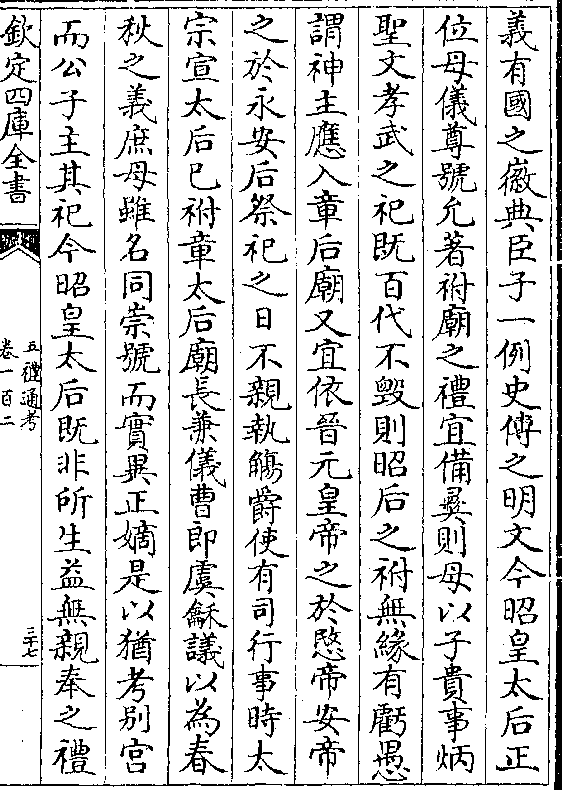 義有國之徽典臣子一例史傳之明文今昭皇太后正
位母儀尊號允著祔廟之禮宜備彛則母以子貴事炳
聖文孝武之祀既百代不毀則昭后之祔無緣有虧愚
謂神主應入章后廟又宜依晉元皇帝之於愍帝安帝
之於永安后祭祀之日不親執觴爵使有司行事時太
宗宣太后已祔章太后廟長兼儀曹郎虞龢議以為春
秋之義庶母雖名同崇號而實異正嫡是以猶考别宫
而公子主其祀今昭皇太后既非所生益無親奉之禮
欽定四庫全書
五禮通考
卷一百二
三十七